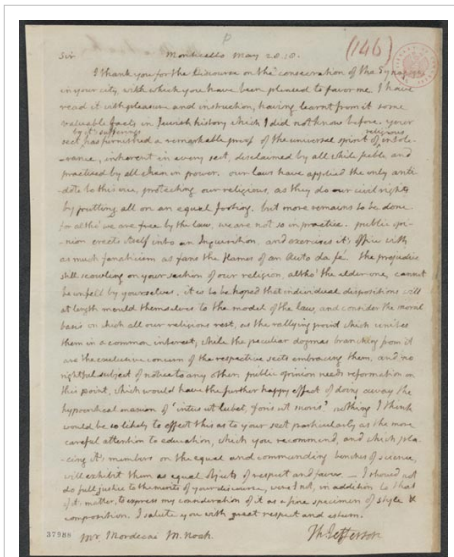 (146)
Sir Monticello May 28. 18.
I thank you for the Discourse on the consecration of the Synagogue
in your city, with which you have been pleased to favor me. I have
read it with pleasure and instruction, having learnt from it some
valuable facts in Jewish history which I did not know before. your
by it's sufferings
sect has furnished a remarkable proof of the universal spirit of religious intole-
rance, inherent in every sect, disclaimed by all while feeble, and
practised by all when in power. our laws have applied the only anti-
dote to this vice, protecting our religious, as they do our civil rights
by putting all on an equal footing. but more remains to be done.
for altho' we are free by the law, we are not so in practice. public opi-
nion erects itself into an Inquisition, and exercises it's office with
as much fanaticism as fans the flames of an Auto da fé. the prejudice
still scowling on your section of our religion, altho' the elder one, cannot
be unfelt by yourselves. it is to be hoped that individual dispositions will
at length mould themselves to the model of the law, and consider the moral
basis on which all our religions rest, as the rallying point which unites
them in a common interest; while the peculiar dogmas branching from it
are the exclusive concern of the respective sects embracing them, and no
rightful subject of notice to any other. public opinion needs reformation on
this point, which would have the further happy effect of doing away the
hypocritical maxim of 'intus ut lubet, foris ut moris'. nothing I think
would be so likely to effect this as to your sect particularly as the more
careful attention to education, which you recommend, and which pla-
cing it's members on the equal and commanding benches of science,
will exhibit them as equal objects of respect and favor. — I should not
do full justice to the merits of your discourse, were I not, in addition to that
of it's matter, to express my consideration of it as a fine specimen of style &
composition. I salute you with great respect and esteem.
Mr Mordecai M. Noah. Th: Jefferson
37988